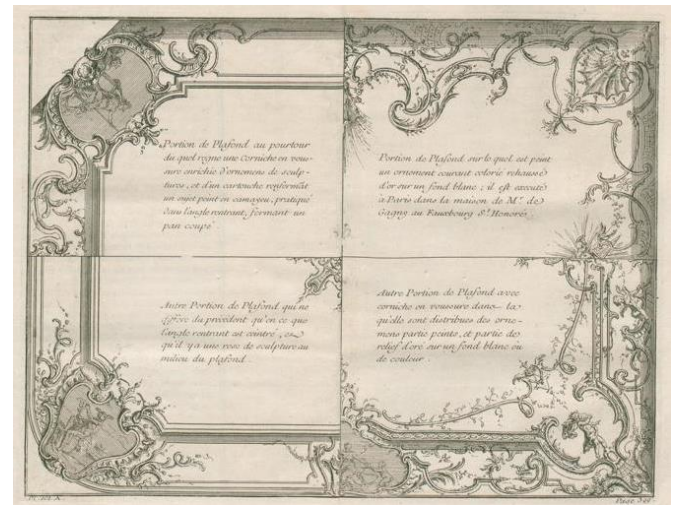 Portion de Plafond au pourtour
du quel regne une Corniche en vous-
sure enrichie d'ornemens de sculp-
tures, et d'un cartouche renfermant
un sujet peint en camayeu, pratiqué
dans l'angle rentrant, formant un
pan coupé
Portion de Plafond sur le quel est peint
un ornement courant colorié rehaussé
d'or sur un fond blanc ; il est executé
a Paris dans la maison de Mr. de
Gagny au Fauxbourg St. Honoré
Autre Portion de Plafond qui ne
differe du precedent qu'en ce que
l'angle rentrant est ceintré, et
qu'il y a une rose de sculpture au
milieu du plafond.
Autre Portion de Plafond avec
corniche en voussure dans la
qu'elle sont distribués des orne-
mens partie peints, et partie de
relief d'oré sur un fond blanc ou
de couleur.